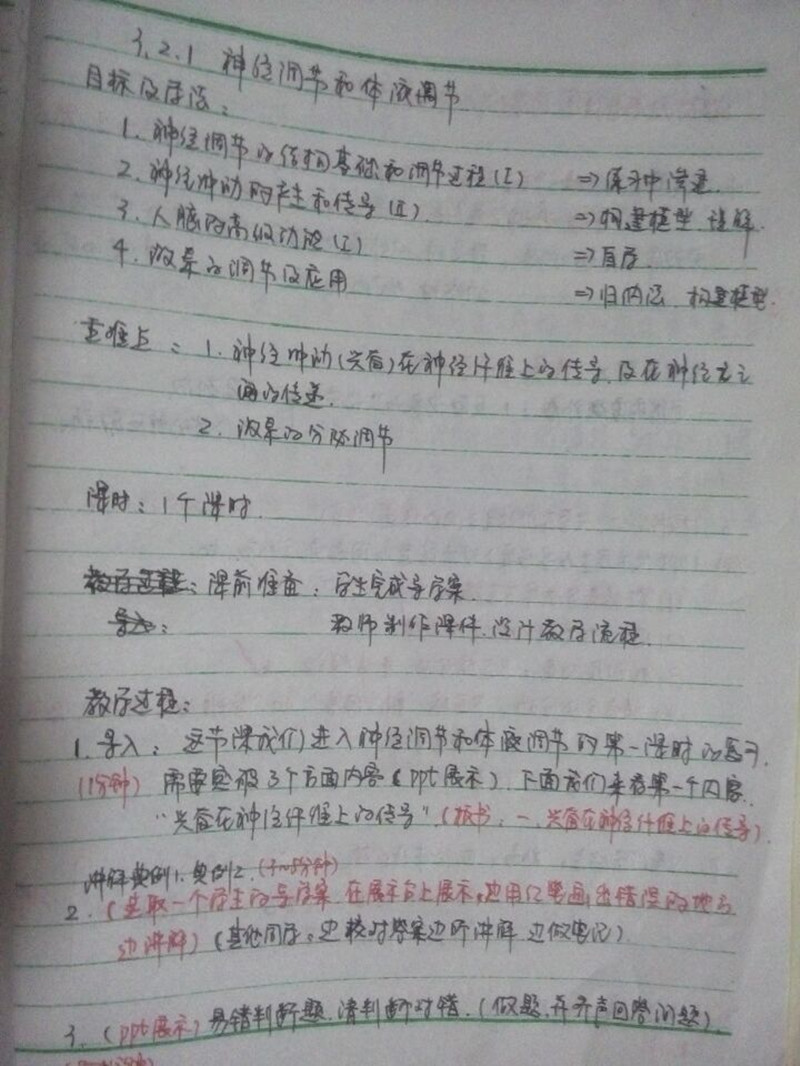 3.2.1 神经调节和体液调节
目标及方法：
1. 神经调节的结构基础和调节过程(I) ⇒ 练习中带过.
2. 神经冲动的产生和传导(II) ⇒ 构建模型 讲解.
3. 人脑的高级功能(I) ⇒ 自学.
4. 激素的调节及应用 ⇒ 归纳法 构建模型.
重难点：1. 神经冲动(兴奋)在神经纤维上的传导，及在神经元之
间的传递.
2. 激素的分泌调节
课时：1个课时.
教学过程：课前准备：学生完成导学案.
导入： 教师制作课件.设计教学流程.
教学过程：
1. 导入：这节课我们进入神经调节和体液调节的第一课时的复习.
(1分钟) 需要突破3个方面内容(ppt展示). 下面我们来看第一个内容.
"兴奋在神经纤维上的传导".(板书：一、兴奋在神经纤维上的传导).
讲解典例1.典例2.
2. (选取一个学生的导学案 在展示台上展示，边用红笔画出错误的地方
边讲解) (其他同学：边核对答案边听讲解 边做笔记).
3. (ppt展示) 易错判断题.请判断对错.(做题.并齐声回答问题)